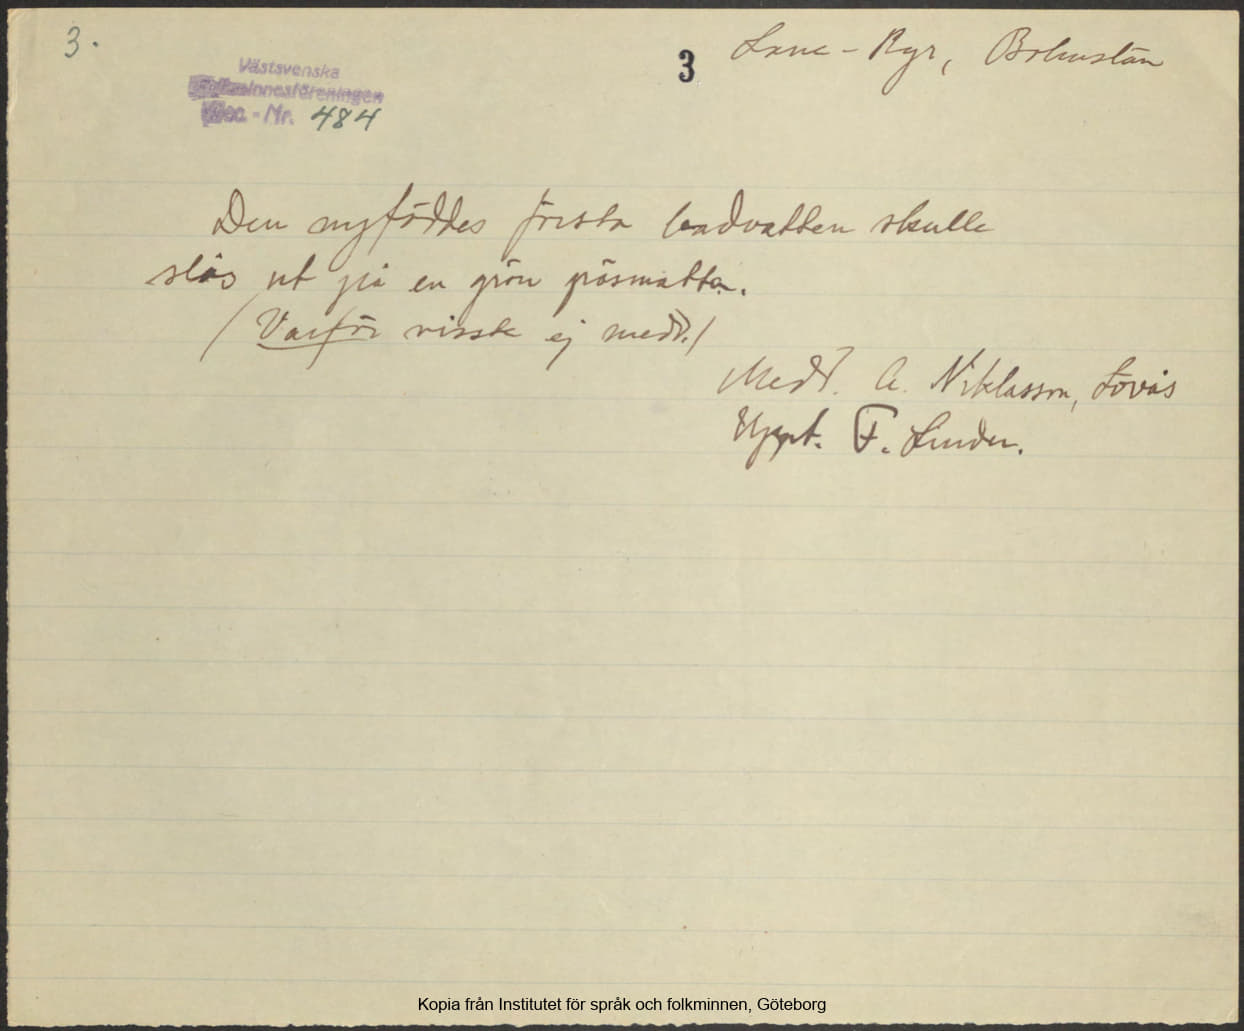 3.
3
Lane-Ryr, Bohuslän
Västsvenska
Folkminnesföreningen
Acc.-Nr. 484
Den nyföddes första badvatten skulle
slås ut på en grön gräsmatta.
/Varför visste ej medd./
Medd. A. Niklasson, Lövås
Uppt. F. Linder.
Kopia från Institutet för språk och folkminnen, Göteborg